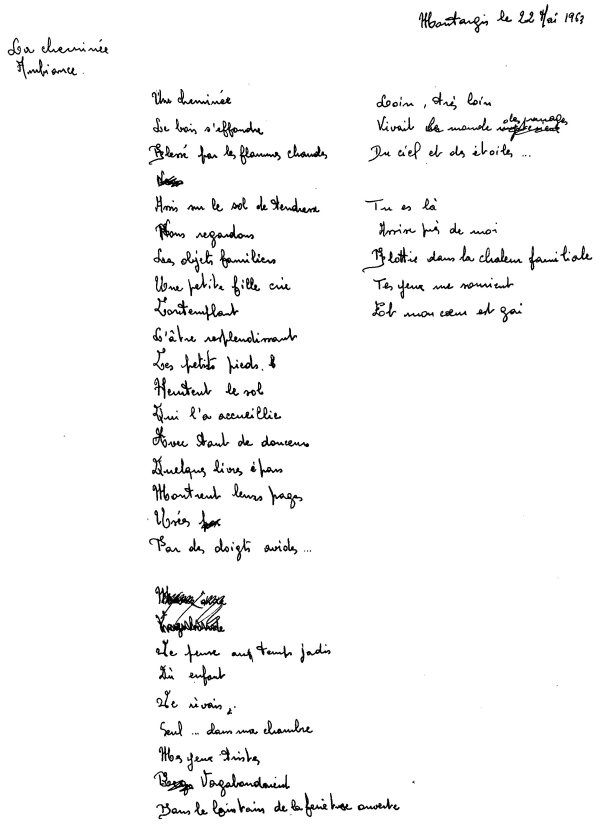 Montargis le 22 Mai 1963
La cheminée
Ambiance.
Une cheminée
Le bois s'effondre
Blessé par les flammes chaudes
Assis sur le sol de tendresse
Nous regardons
Les objets familiers
Une petite fille crie
Contemplant
L'âtre resplendissant
Ces petits pieds.
Heurtent le sol
Qui l'a accueillie
Avec tant de douceur
Quelques livres épars
Montrent leurs pages
Usées
Par des doigts avides...
Je pense aux temps jadis
Où enfant
Je rêvais,
Seul ... dans ma chambre
Mes yeux tristes
Vagabondaient
Dans le lointain de la fenêtre ouverte
Loin, très loin
Vivait le monde des nuages
Du ciel et des étoiles ...
Tu es là
Assise près de moi
Blottie dans la chaleur familiale
Tes yeux me sourient
Et mon cœur est gai